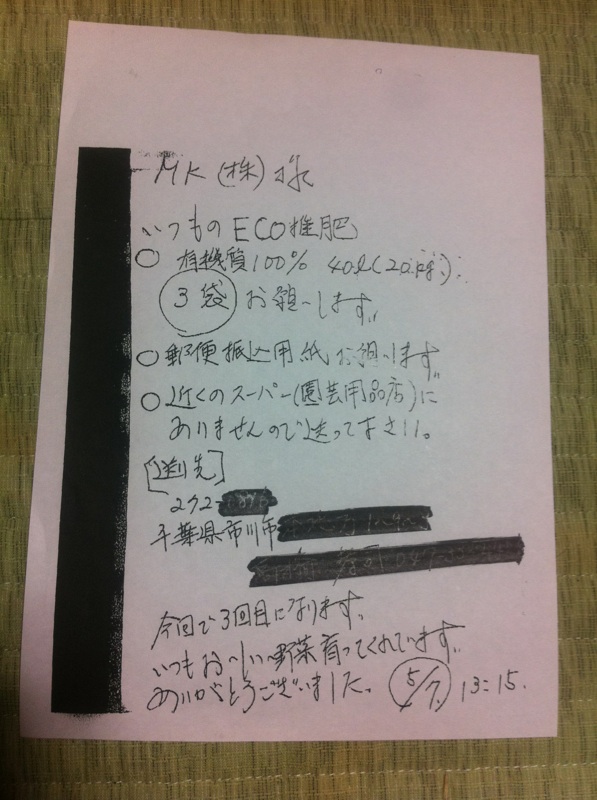 MK(株)様
いつものECO推肥
○ 有機質100% 40ℓ(20kg)
3袋 お願いします。
○ 郵便振込用紙お願いします。
○ 近くのスーパー(園芸用品店)に
ありませんので送って下さい。
[送り先]
272-
千葉県市川市
今回で3回目になります。
いつもおいしい野菜育ってくれています。
ありがとうございました。 5/7 13:15.